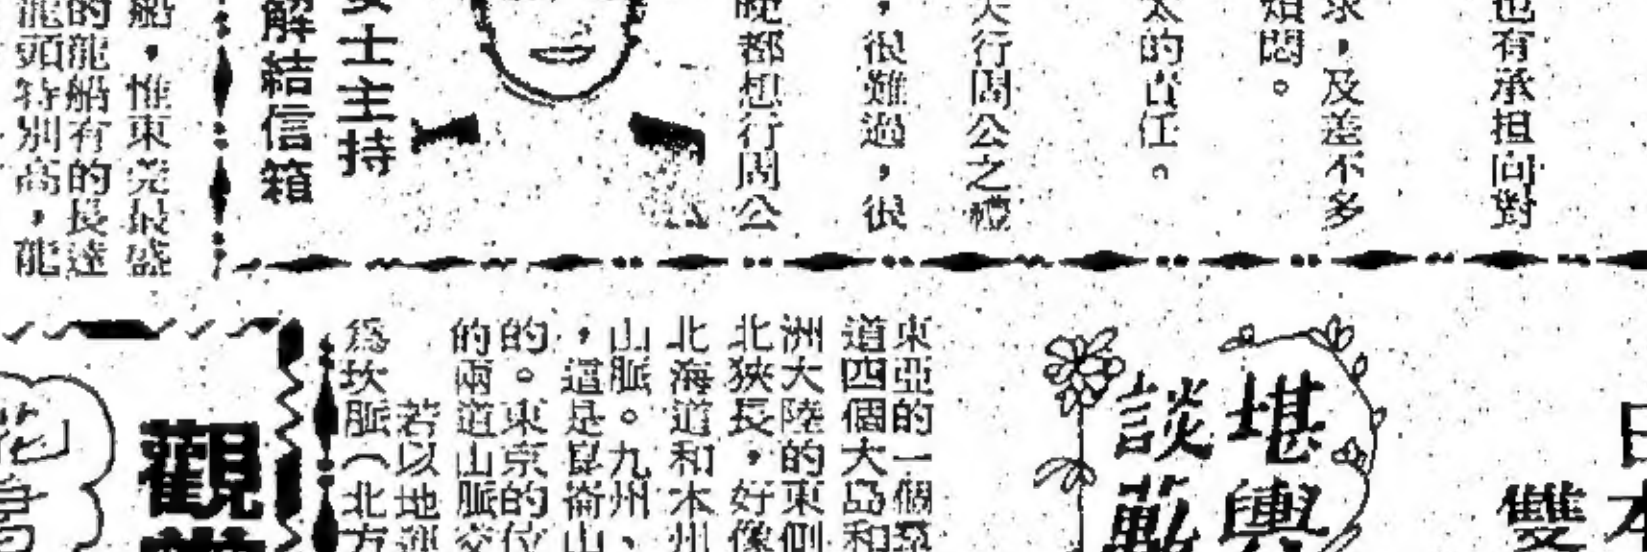 也有承担向對
求，及差不多
煩悶。
太的責任。
行周公之禮
，很難過，很
晚都想行周公
女士主持
解結信箱
船，惟東莞最盛
的龍船有的長達
龍頭特別高，龍
日本
雙
堪輿
談
東亞的一個羣
道四個大島和
洲大陸的東側
北狹長，好像
北海道和本州
山脈。九州、
，這是崑崙山
的。東京的位
的兩道山脈交
若以地運
爲坎脈（北方
觀